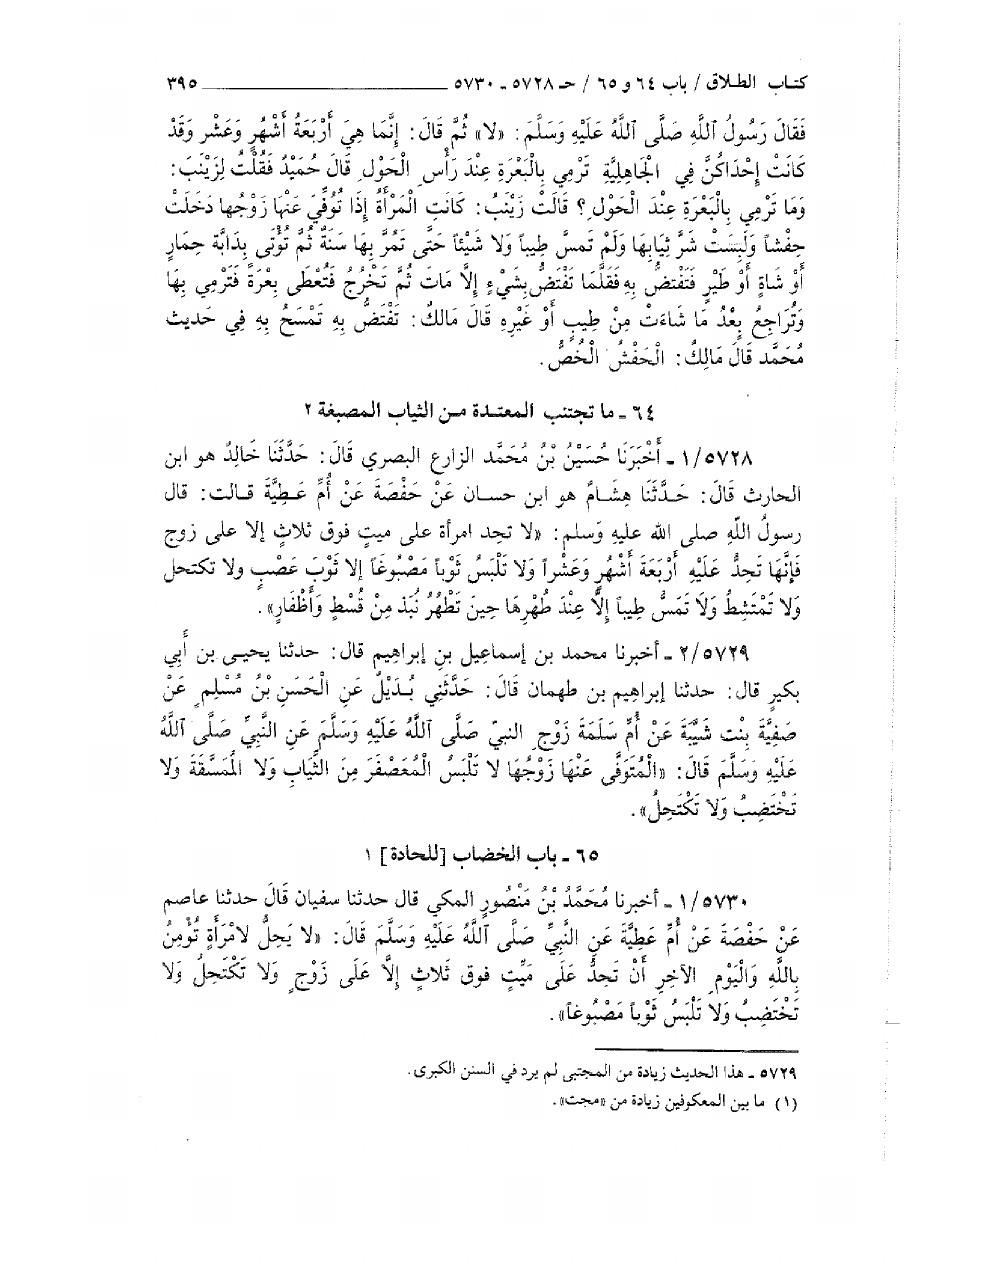 كتاب الطلاق / باب ٦٤ و ٦٥ / حـ ٥٧٢٨ ـ ٥٧٣٠ ٣٩٥
فَقَالَ رَسُولُ ٱللَّهِ صَلَّى ٱللَّهُ عَلَيْهِ وَسَلَّمَ: «لا» ثُمَّ قَالَ: إِنَّمَا هِيَ أَرْبَعَةُ أَشْهُرٍ وَعَشْر وَقَدْ
كَانَتْ إِحْدَاكُنَّ فِي الْجَاهِلِيَّةِ تَرْمِي بِالْبَعْرَةِ عِنْدَ رَأْسِ الْحَوْلِ قَالَ حُمَيْدٌ فَقُلْتُ لِزَيْنَبَ:
وَمَا تَرْمِي بِالْبَعْرَةِ عِنْدَ الْحَوْلِ؟ قَالَتْ زَيْنَبُ: كَانَتِ الْمَرْأَةُ إِذَا تُوُفِّيَ عَنْهَا زَوْجُها دَخَلَتْ
حِفْشاً وَلَبِسَتْ شَرَّ ثِيَابِهَا وَلَمْ تَمسَّ طِيباً وَلا شَيْئاً حَتَّى تَمُرَّ بِهَا سَنَةٌ ثُمَّ تُؤْتَى بِدَابَّة حِمَارٍ
أَوْ شَاةٍ أَوْ طَيْرٍ فَتَفْتَضُّ بِهِ فَقَلَّمَا تَفْتَضُّ بِشَيْءٍ إِلَّا مَاتَ ثُمَّ تَخْرُجُ فَتُعْطَى بِعْرَةً فَتَرْمِي بِهَا
وَتُرَاجِعُ بِعْدُ مَا شَاءَتْ مِنْ طِيبٍ أَوْ غَيْرِهِ قَالَ مَالكٌ: تَفْتَضُّ بِهِ تَمْسَحُ بِهِ فِي حديث
مُحَمَّد قَالَ مَالِكٌ: الْحَفْشُ الْخُصُّ.
٦٤ ـ ما تجتنب المعتدة من الثياب المصبغة ٢
١/٥٧٢٨ ـ أَخْبَرَنَا حُسَيْنُ بْنُ مُحَمَّد الزارع البصري قَالَ: حَدَّثَنَا خَالِدٌ هو ابن
الحارث قَالَ: حَدَّثَنَا هِشَامٌ هو ابن حسان عَنْ حَفْصَةَ عَنْ أُمِّ عَطِيَّةَ قالت: قال
رسولُ اللَّهِ صلى الله عليهِ وَسلم: «لا تحد امرأة على ميتٍ فوق ثلاثٍ إلا على زوج
فَإِنَّهَا تَحِدُّ عَلَيْهِ أَرْبَعَةَ أَشْهُرٍ وَعَشْراً وَلا تَلْبَسُ ثَوْباً مَصْبُوغَاً إلا ثَوْبَ عَصْبٍ ولا تكتحل
وَلا تَمْتَشِطُ وَلَا تَمَسُّ طِيباً إِلَّا عِنْدَ طُهْرِهَا حِينَ تَطْهُرُ نُبَذ مِنْ قُسْطٍ وَأَظْفَارٍ».
٢/٥٧٢٩ ـ أخبرنا محمد بن إسماعيل بنِ إبراهِيم قال: حدثنا يحيى بن أَبِي
بكيرٍ قال: حدثنا إبراهِيم بن طهمان قَالَ: حَدَّثَنِي بُدَيْلٌ عَنِ الْحَسَنِ بْنُ مُسْلِمٍ عَنْ
صَفِيَّةَ بِنْتِ شَيْبَةَ عَنْ أُمِّ سَلَمَةَ زَوْجِ النبيّ صَلَّى ٱللَّهُ عَلَيْهِ وَسَلَّمَ عَنِ النَّبِيِّ صَلَّى ٱللَّهُ
عَلَيْهِ وَسَلَّمَ قَالَ: «الْمُتَوَفَّى عَنْهَا زَوْجُهَا لا تَلْبَسُ الْمُعَصْفَرَ مِنَ الثِّيَابِ وَلا الْمُمَسَّقَةَ وَلا
تَخْتَضِبُ وَلا تَكْتَحِلُ».
٦٥ ـ باب الخضاب [للحادة] ١
١/٥٧٣٠ ـ أخبرنا مُحَمَّدُ بْنُ مَنْصُورٍ المكي قال حدثنا سفيان قَالَ حدثنا عاصم
عَنْ حَفْصَةَ عَنْ أُمِّ عَطِيَّةَ عَنِ النَّبِيِّ صَلَّى ٱللَّهُ عَلَيْهِ وَسَلَّمَ قَالَ: «لا يَحِلُّ لامْرَأَةٍ تُؤْمِنُ
بِاللَّهِ وَالْيَوْمِ الآخِرِ أَنْ تَحِدَّ عَلَى مَيِّتٍ فوق ثَلاثٍ إِلَّا عَلَى زَوْجٍ وَلا تَكْتَحِلُ وَلا
تَخْتَضِبُ وَلا تَلْبَسُ ثَوْباً مَصْبُوغاً».
٥٧٢٩ ـ هذا الحديث زيادة من المجتبى لم يرد في السنن الكبرى.
(١) ما بين المعكوفين زيادة من «مجت».